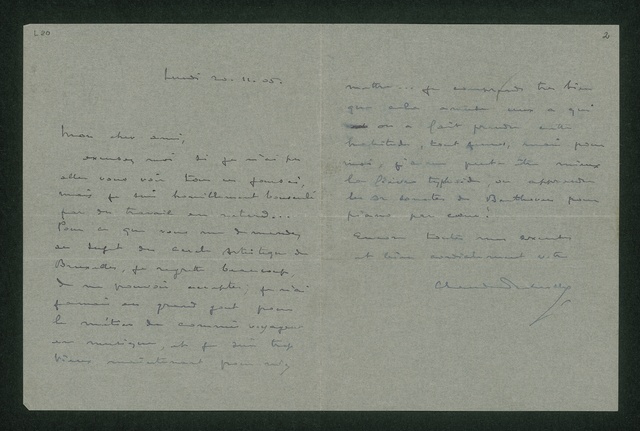 L 00
2
Lundi 20. 11. 05.
Mon cher ami,
excusez moi si je n'ai pu
aller vous voir tous ces jours ci,
mais je suis horriblement bousculé
par du travail en retard...
Pour ce que vous me demandez
au sujet du Cercle Artistique de
Bruxelles, je regrette beaucoup
de ne pouvoir accepter; je n'ai
jamais eu grand goût pour
le métier de commis voyageur
en musique, et je suis trop
vieux maintenant pour m'y
mettre... Je comprends très bien
que cela arrive à qui
on a fait prendre cette
habitude, tout jeune, mais pour
moi, j'aime peut être mieux
la fièvre typhoïde, ou apprendre
les 32 sonates de Beethoven pour
piano par cœur!
Encore toutes mes excuses
et bien cordialement votre
Claude Debussy